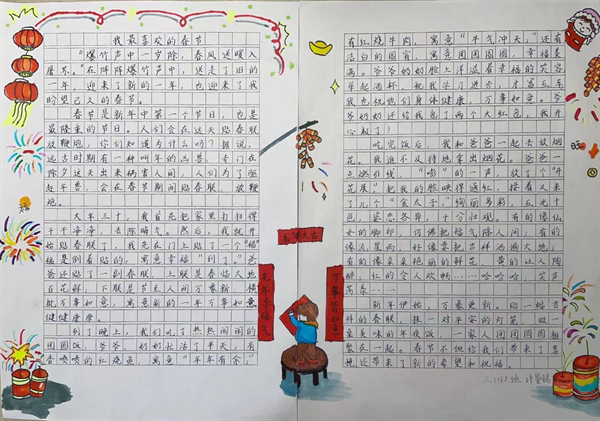 我最喜欢的春节
“爆竹声中一岁除，春风送暖入
屠苏。”在阵阵爆竹声中，送走了旧的
一年，迎来了新的一年，也迎来了我
盼望已久的春节。
春节是新年中第一个节日，也是
最隆重的节日。人们会在这天贴春联
放鞭炮，你们知道为什么吗？据说，
远古时期有一种叫年的凶兽，专门在
除夕这天出来祸害人间，人们为了驱
赶年兽，会在春节期间贴春联、放鞭
炮。
大年三十，我首先把家里打扫得
干干净净，去除晦气。然后，我就开
始贴春联了，我先在门上贴了一个“福”
福是倒着贴的，寓意幸福“到”了。爸
爸还贴了一副春联，上联是春临大地
百花鲜，下联是节至人间万象新，横
批万事如意，寓意新的一年万事如意
健健康康。
到了晚上，我们吃了热热闹闹的
团圆饭，爷爷、奶奶忙活了半天，有
香喷喷的红烧鱼，寓意“年年有余”，
有红烧牛肉，寓意“牛气冲天”，还有
洁白的圆宵，寓意团团圆圆，幸福美
满。爷爷奶奶脸上洋溢着幸福的笑容
举起酒杯，祝我学习进步，才富五车
我也祝他们身体健康，万事如意。爷
爷奶奶还给我包了两个大红包，我开
心极了！
吃完饭后，我和爸爸一起去放烟
花。我迫不及待地拿出烟花。爸爸一
点燃引线，“嘭”的一声，放了个“开
花展”把我的脸映得通红，接着又来
了几个“金太子”，绚丽多彩，五光十
色，姿态各异，十分壮观，有的像仙
女的脚印，仿佛把福气除人间，有的
像流星雨，好像要把吉祥洒满大地，
有的像朵朵艳丽的鲜花，黄的让人陶
醉，红的令人欢畅……哈哈哈，笑声
荡漾……
新年伊始，万象更新。贴一幅吉
祥的春联，挂一对平安的灯笼，做一
桌美味的年夜饭，一家人团团圆圆相
聚在一起。春节不但给我们带来了喜
悦还带来了新的希望和祝福。